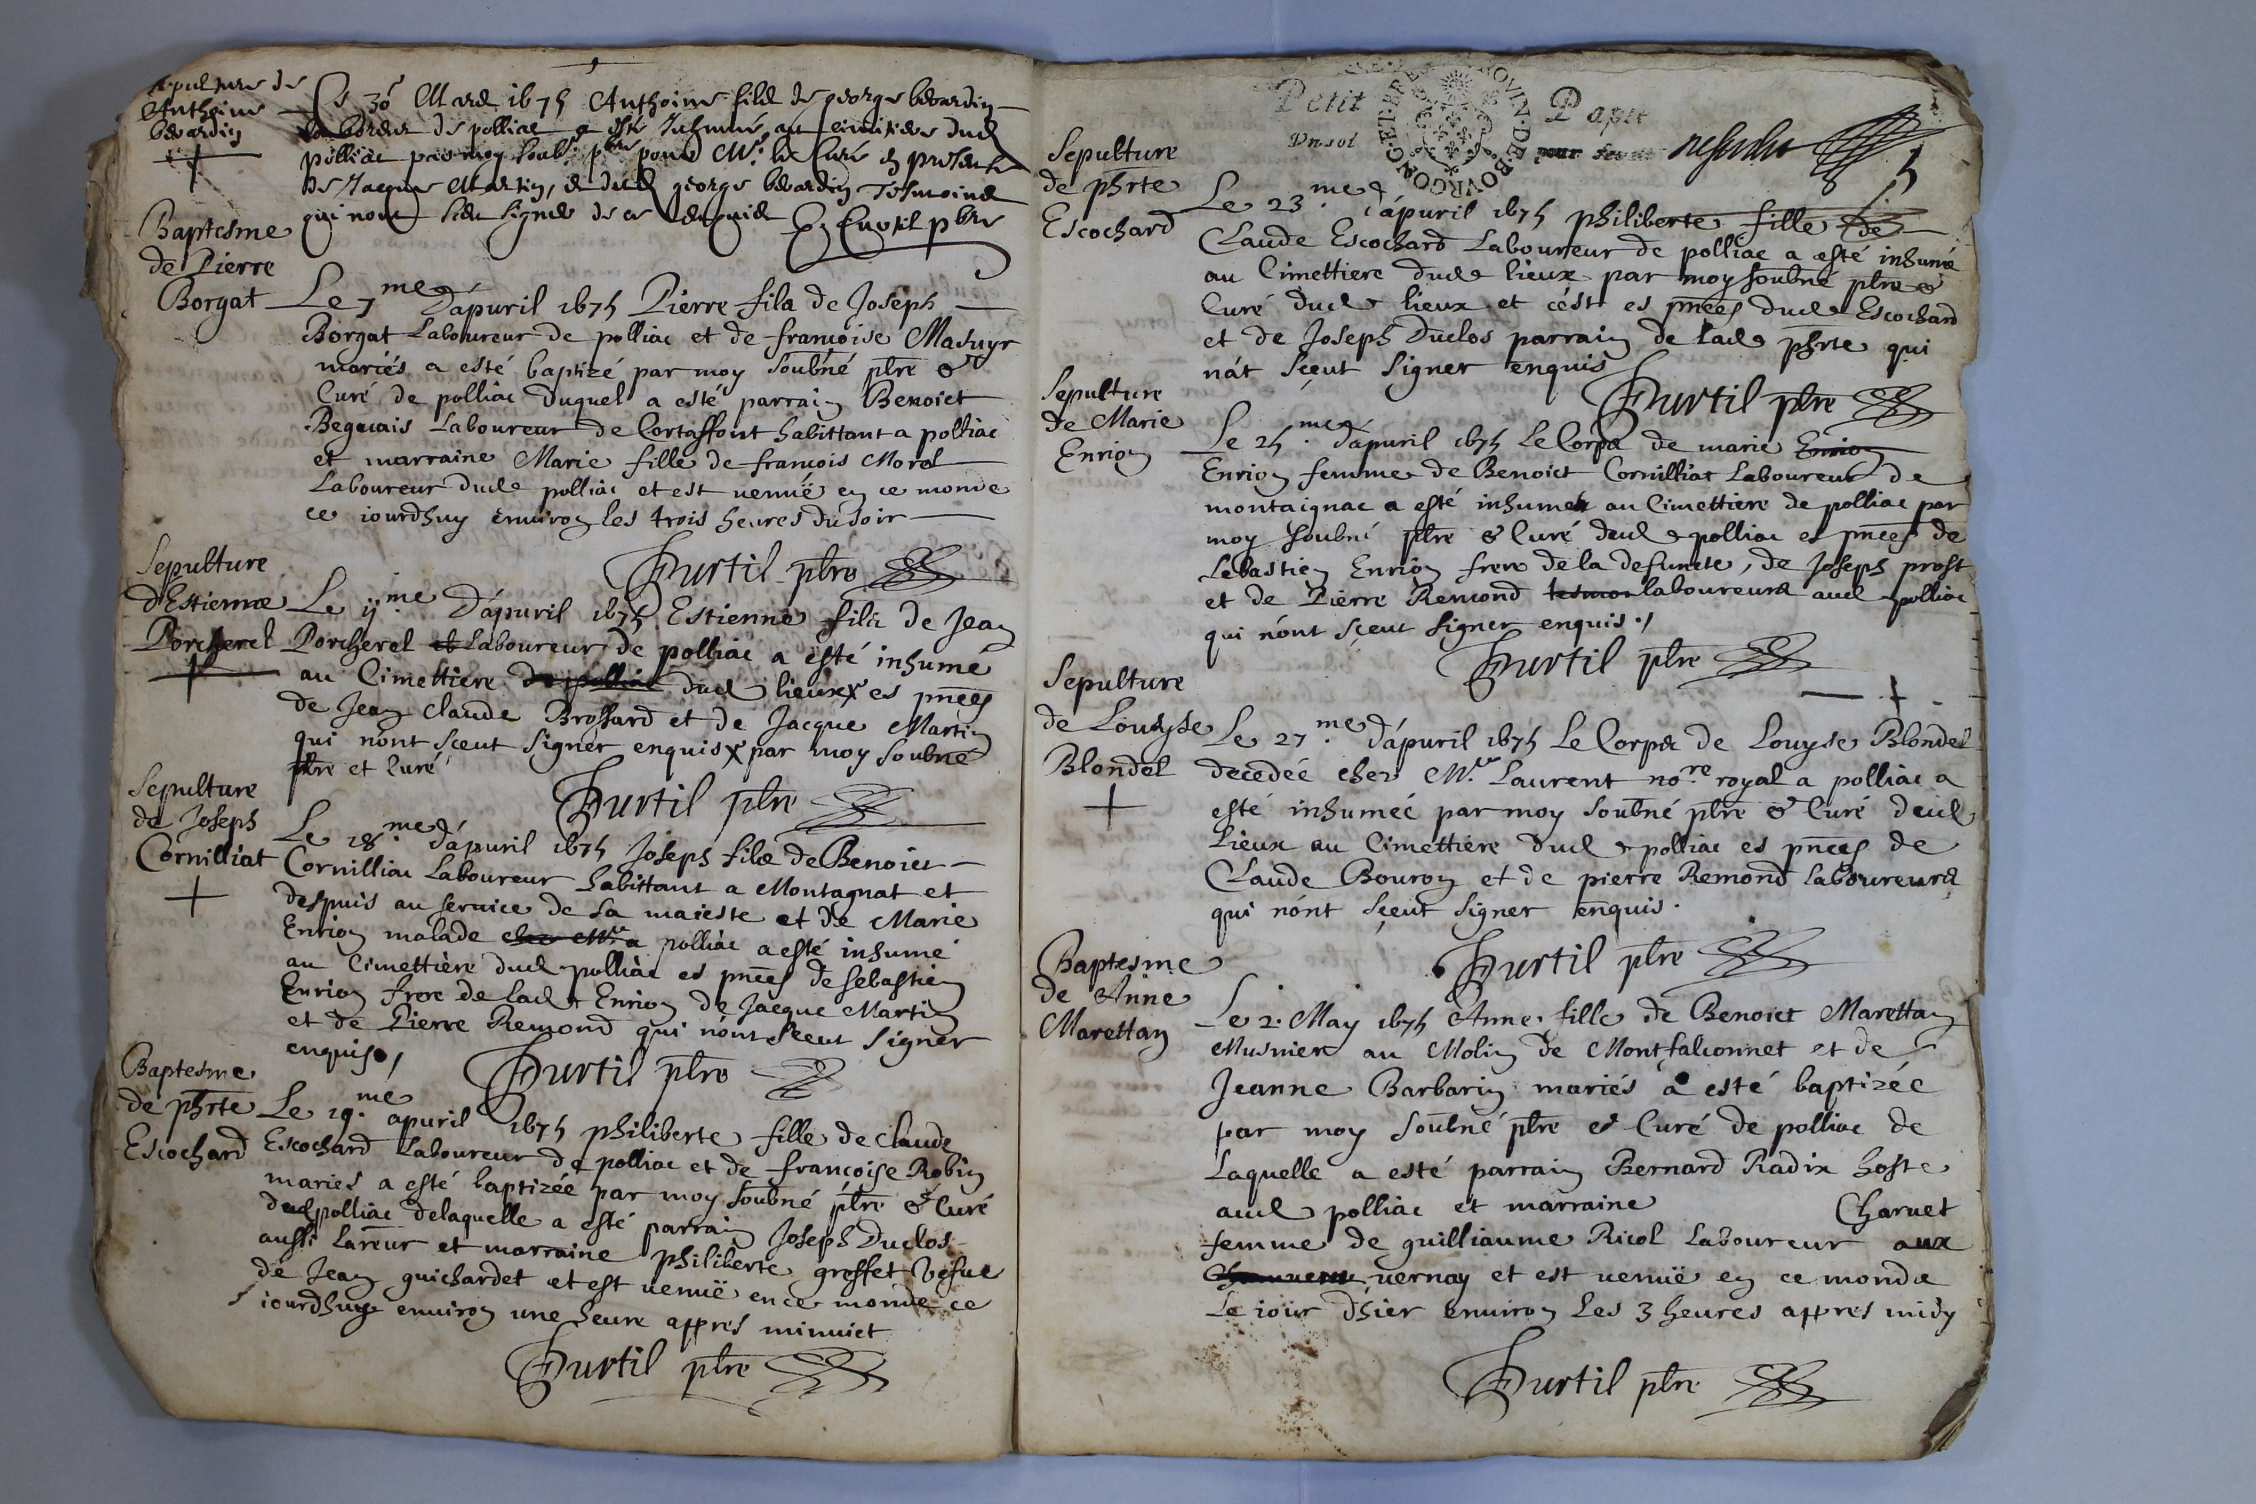 sepulture de
Anthoine
beuardin
Ce 30e Mars 1675 Anthoine filz de george beuardin
laboreur de polliac a esté Inhumé au cimitiere dud
polliac par moy soubs. pbre pour Mr. le Curé en presence
de Jacque Martin, & dud george beuardin Tesmoins
qui nont sceu signés de ce enquis pbre
Baptesme
de Pierre
Borgat
Le 7.me d'apuril 1675 Pierre fils de Joseph
Borgat Laboureur de polliac et de francoise Masuyr
mariés a esté baptizé par moy soubné ptre &
Curé de polliac duquel a esté parrain Benoict
Beguais Laboureur de Cortaffont habittant a polliac
et marraine Marie fille de francois Morel
Laboureur dud polliac et est venuë en ce monde
ce iourdhuy enuiron les trois heures du soir
Hurtil ptre
Sepulture
d'Estienne
Porcherel
Le ij.me D'apuril 1675 Estienne fils de Jean
Porcherel et Laboureur de polliac a esté inhumé
au Cimettiere de polliac dud lieux x es pnces
de Jean claude Brossard et de Jacque Martin
qui nont sceut signer enquis x par moy soubné
ptre et Curé
Hurtil ptre
Sepulture
de Joseph
Cornilliat
Le 18.me d'apuril 1675 Joseph fils de Benoict
Cornilliac Laboureur habittant a Montagnat et
despuis au seruice de sa maieste et de Marie
Enrion malade chez Mr. a polliac a esté inhumé
au Cimettière dud polliac es pnces de sebastien
Enrion frere de lad Enrion de Jacque Martin
et de Pierre Remond qui n'ont sceut signer
enquis,
Hurtil ptre
Baptesme
de phrte
Escochard
Le 19.me apuril 1675 philiberte fille de claude
Escochard Laboureur de polliac et de françoise Robin
mariés a esté baptizée par moy soubné ptre & Curé
dud polliac delaquelle a esté parrain Joseph Duclos
aussi Lareur et marraine philiberte grosset vefue
de Jean guichardet et est venuë en ce monde ce
iourdhuy enuiron une heure appres minuict
Hurtil ptre
Petit Papr
Vn sol pour feuille
BOVRGONG·ET·BRES
5
Sepulture
de phrte
Escochard
Le 23.me d'apuril 1675 philiberte fille de
Claude Escochard Laboureur de polliac a esté inhumé
au Cimettiere dud lieux par moy soubné ptre &
Curé dud lieux et c'est es pnces dud Escochard
et de Joseph Duclos parrain de lad phrte qui
n'at sçeut signer enquis
Hurtil ptre
Sepulture
de Marie
Enrion
Le 25.me d'apuril 1675 Le Corps de marie Enrion
Enrion femme de Benoict Cornilliat Laboureur de
montaignac a esté inhumé au Cimettiere de polliac par
moy soubné ptre & Curé dud polliac es pnces de
sebastien Enrion frere de la defuncte, de Joseph prost
et de Pierre Remond tesmon laboureurs aud polliac
qui n'ont sçeut signer enquis.
Hurtil ptre
Sepulture
de Louyse
Blondel
Le 27.me d'apuril 1675 Le Corps de Louyse Blondel
decedéé chez Mr. Laurent no.re royal a polliac a
esté inhuméé par moy soubné ptre & Curé dud
Lieux au Cimettiére dud polliac es pnces de
Claude Bouron et de pierre Remond laboureurs
qui n'ont sçeut signer enquis.
Hurtil ptre
Baptesme
de Anne
Marettan
Le 2. May 1675 Anne fille de Benoict Marettan
Musnier au Molin de Montfalconnet et de
Jeanne Barbarin mariés a esté baptizéé
par moy soubné ptre et Curé de polliac de
Laquelle a esté parrain Bernard Radix hoste
aud polliac et marraine Charuet
femme de guilliaume Ricol Laboureur aux
vernay et est venuë en ce monde
Le iour d'hier enuiron Les 3 heures appres midy
Hurtil ptre